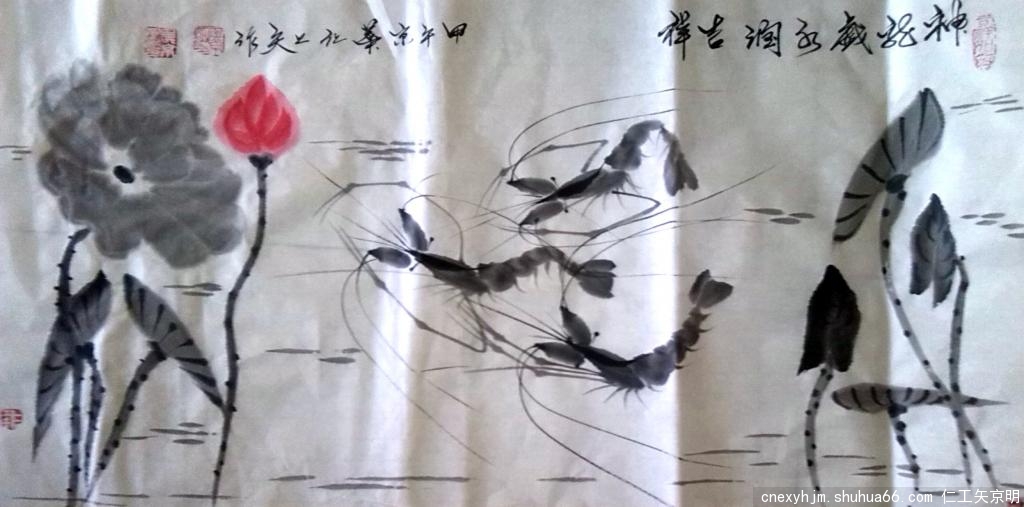 神龍戲水潤吉祥
甲午京華
矢作
cnexyhjm.shuhua66.com 仁工矢京明